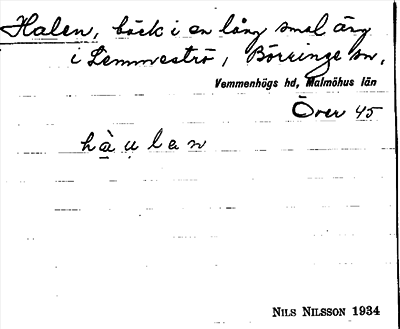 Halen, bäck i en lång smal äng
i Lemmeströ, Börringe sn,
Vemmenhögs hd, Malmöhus län
Över 45
hạ̀u̥lan
NILS NILSSON 1934